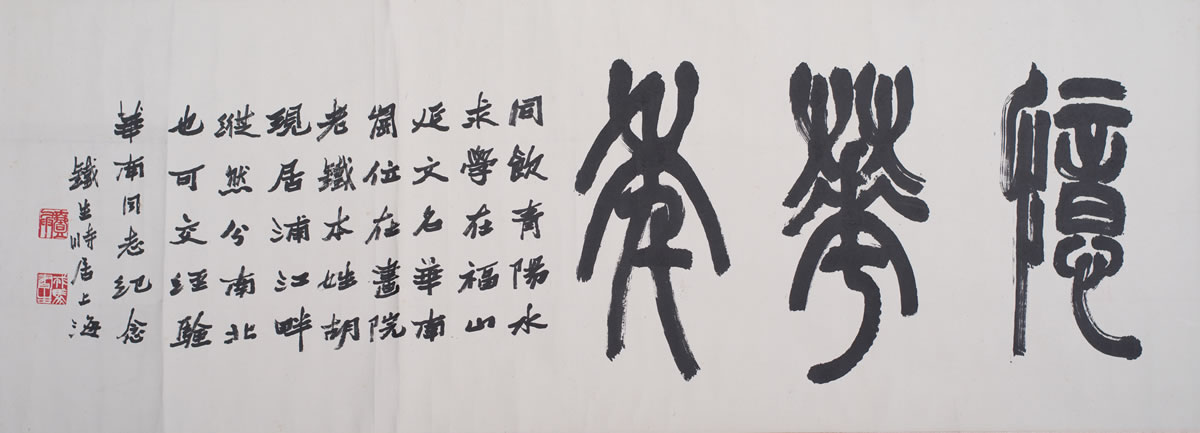 憶華年
同飲青陽水
求學在福山
延文名華南
崗位在畫院
老鐵本姓胡
現居浦江畔
縱然分南北
也可交經驗
華南同志紀念
鐵生時居上海